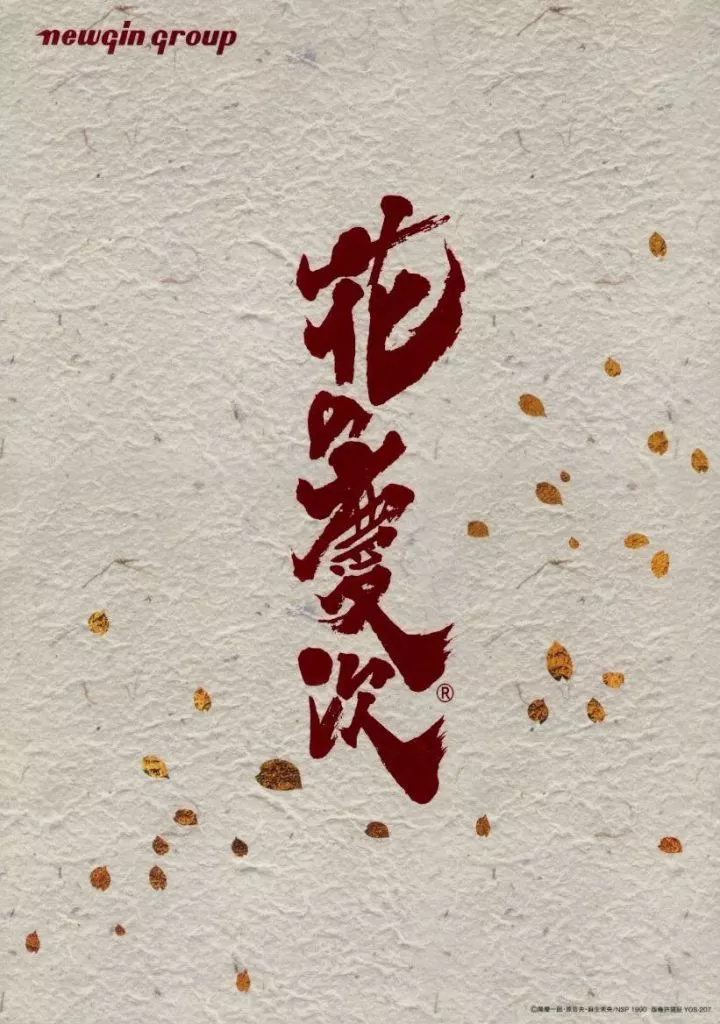 newgin group
花の慶次
®
©隆慶一郎・原哲夫・麻生未央/NSP 1990 版権許諾証 YOS-207